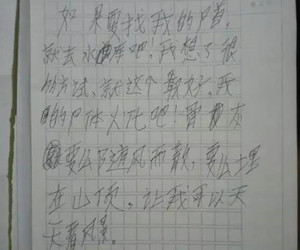 如果要找我的尸首,
就去水库吧,我想了很
的方试,就这个最好,我
的尸体火化吧!骨灰
要么随风而散,要么埋
在山顶,让我可以天
天看风景。